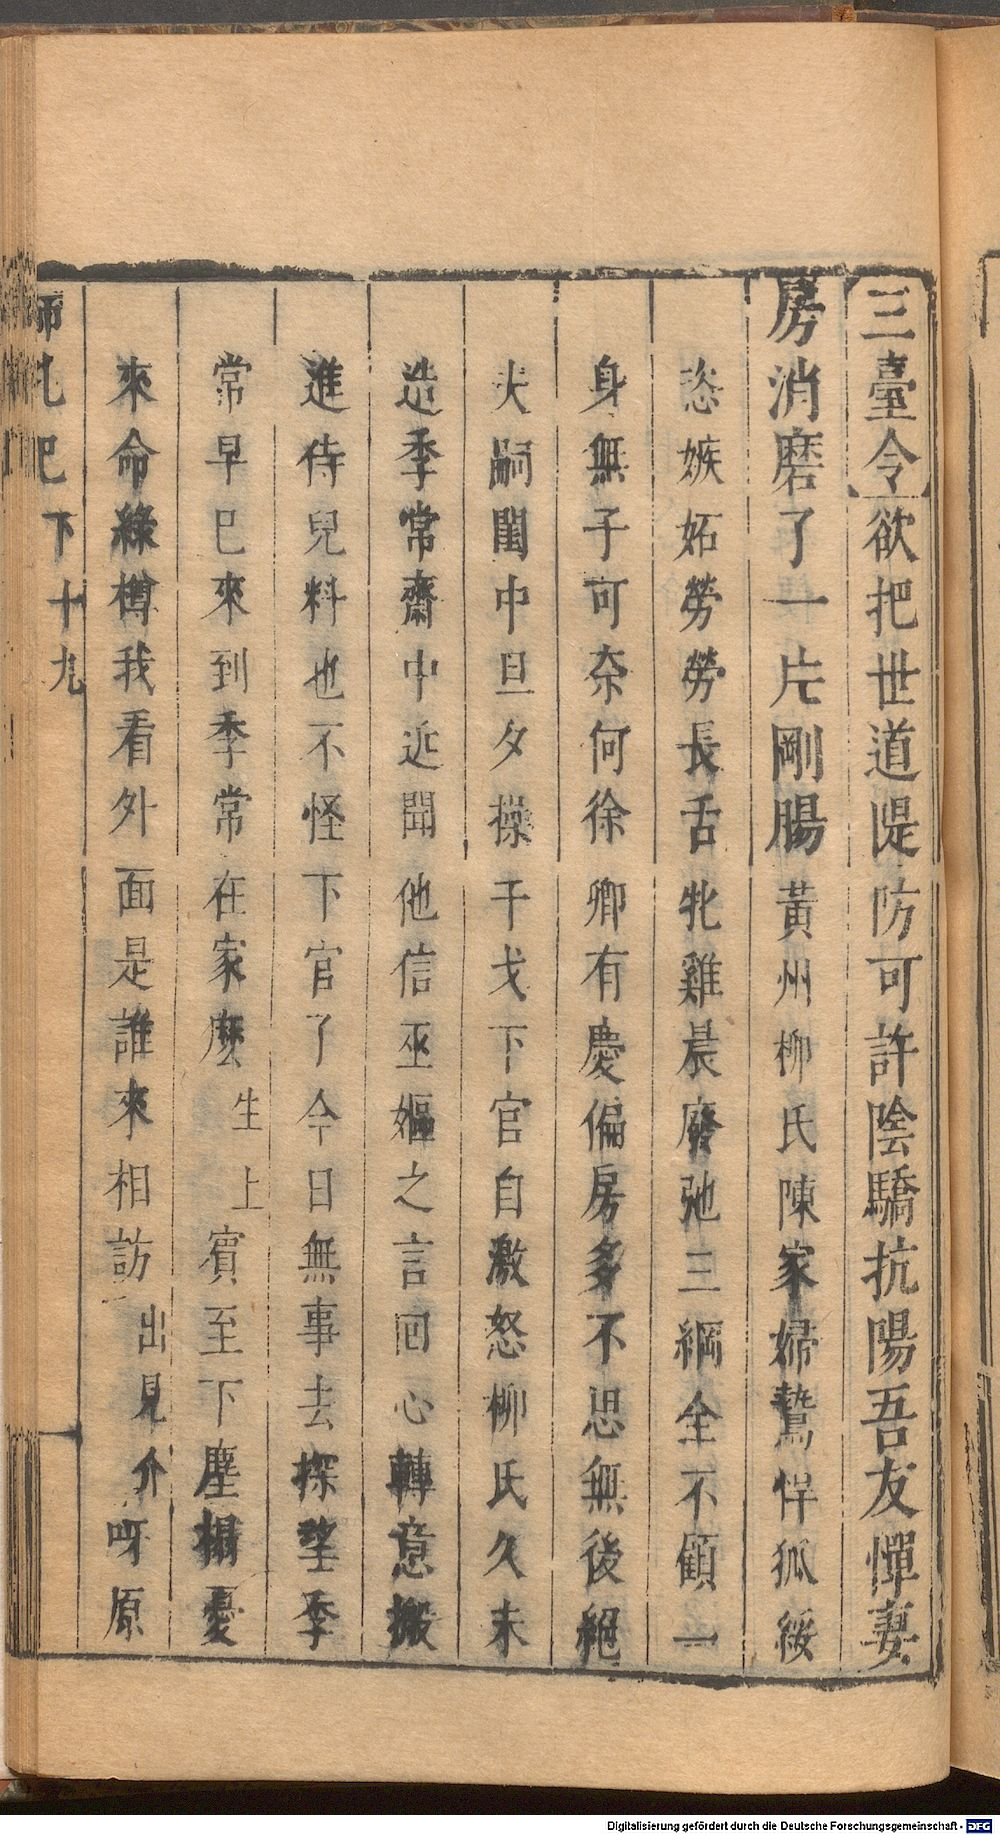 三臺令欲把世道隄防可許陰驕抗陽吾友憚妻
房消磨了一片剛腸黃州柳氏陳家婦鷙悍狐綏
恣嫉妬勞勞長舌牝雞晨廢弛三綱全不顧一
身無子可奈何徐卿有慶偏房多不思無後絕
夫嗣閨中旦夕操干戈下官自激怒柳氏久未
造季常齋中近聞他信巫嫗之言回心轉意搬
進侍兒料也不怪下官了今日無事去探望季
常早已來到季常在家麼生上賓至下塵榻憂
來命綠樽我看外面是誰來相訪出見介呀原
師吼記 下 十九
Digitalisierung gefördert durch die Deutsche Forschungsgemeinschaft - DFG